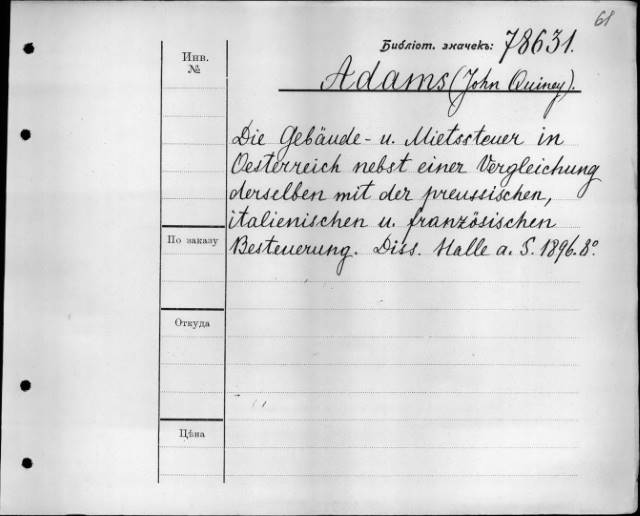 61
Библіот. значекъ: 78631.
Инв.
№
Adams (John Quincy).
Die Gebäude- u. Mietssteuer in
Oesterreich nebst einer Vergleichung
derselben mit der preussischen,
italienischen u. französischen
Besteuerung. Diss. Halle a. S. 1896. 8º
По заказу
Откуда
Цѣна